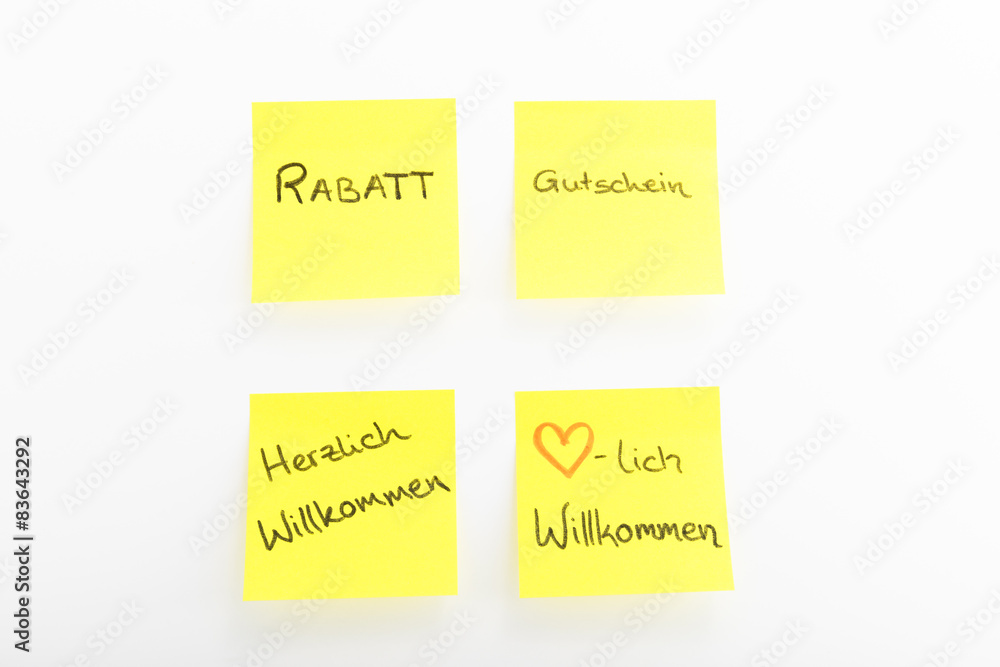 RABATT
Gutschein
Herzlich
Willkommen
♡-lich
Willkommen
Adobe Stock | #83643292